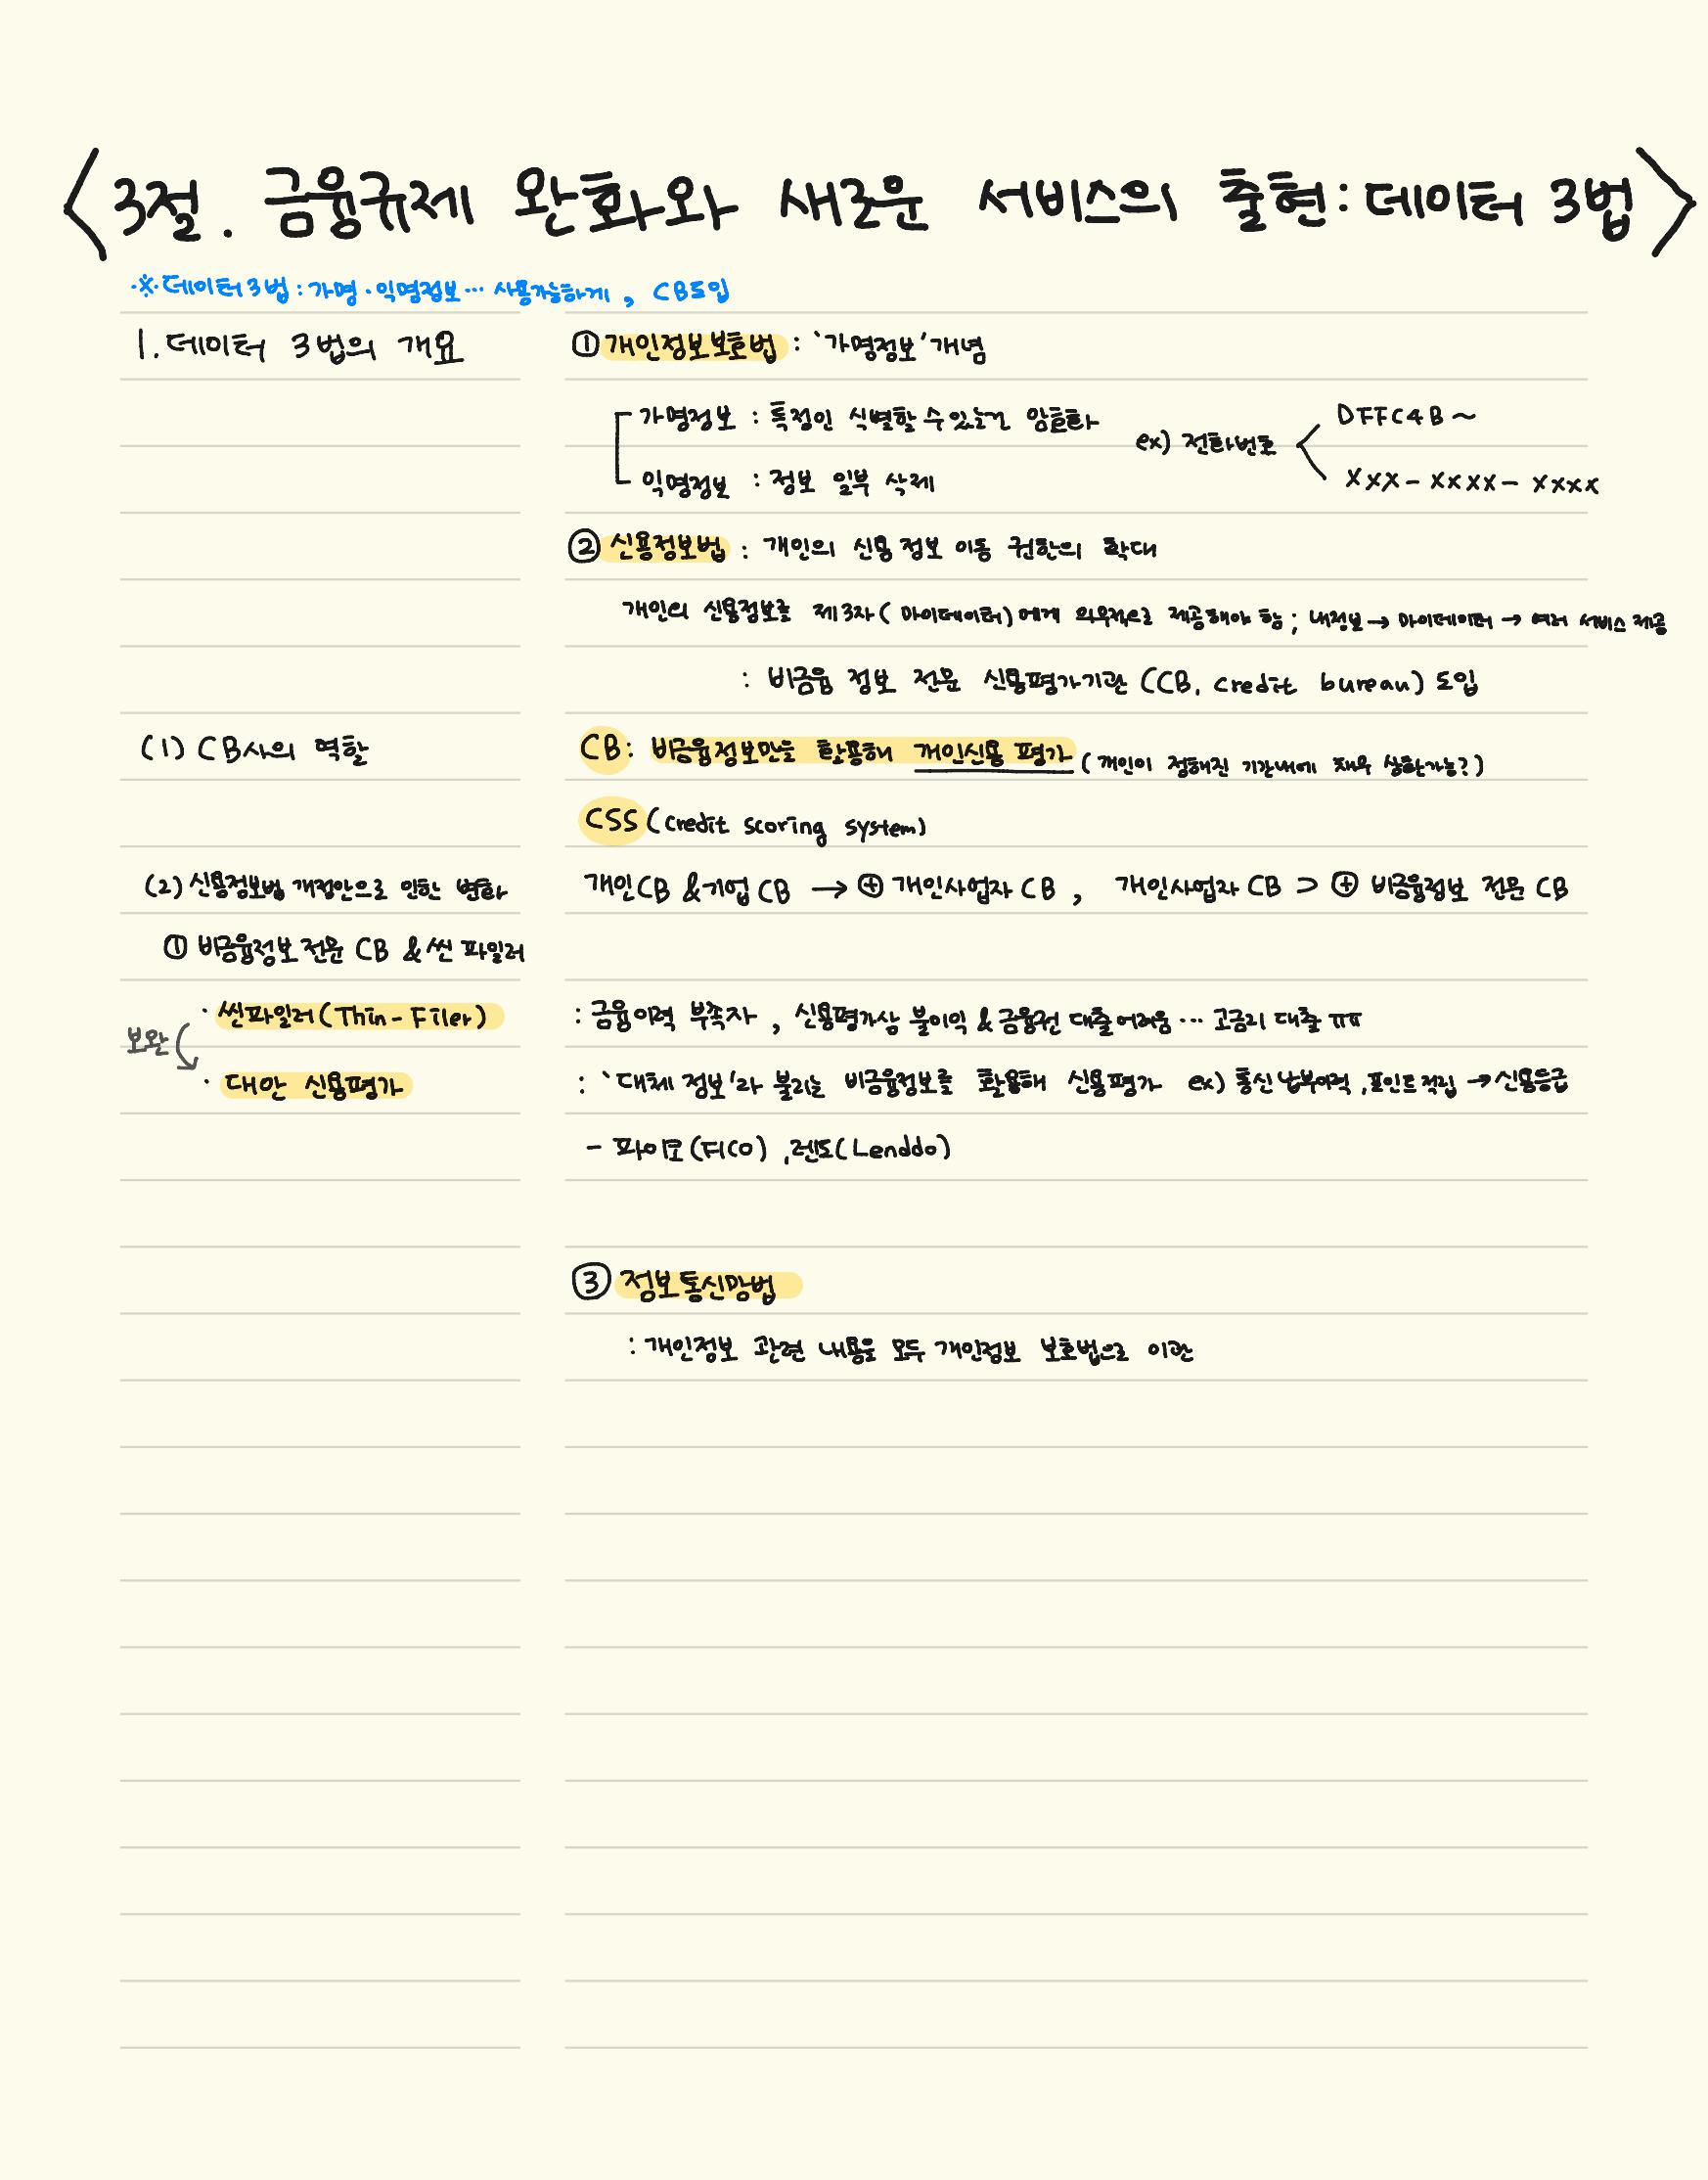 <3절. 금융규제 완화와 새로운 서비스의 출현: 데이터 3법>
※데이터3법: 가명·익명정보… 사용가능하게, CB도입
1. 데이터 3법의 개요
① 개인정보보호법 : '가명정보' 개념
가명정보 : 특정인 식별할 수 있는건 암호화
ex) 전화번호 < DFFC4B~
익명정보 : 정보 일부 삭제
XXX-XXXX-XXXX
② 신용정보법 : 개인의 신용 정보 이동 권한의 확대
개인의 신용정보를 제3자(마이데이터)에게 의무적으로 제공해야 함; 내정보→마이데이터→여러 서비스 제공
: 비금융 정보 전문 신용평가기관 (CB, credit bureau) 도입
(1) CB사의 역할
CB: 비금융정보만을 활용해 개인신용 평가 (개인이 정해진 기간내에 채무 상환가능?)
CSS (credit scoring system)
(2) 신용정보법 개정안으로 인한 변화
개인CB & 기업CB → ⊕ 개인사업자 CB, 개인사업자 CB ⊃ ⊕ 비금융정보 전문 CB
① 비금융정보 전문 CB & 씬 파일러
· 씬파일러(Thin-Filer)
: 금융이력 부족자, 신용평가상 불이익 & 금융권 대출어려움… 고금리 대출 ㅠㅠ
보완
· 대안 신용평가
: '대체 정보'라 불리는 비금융정보를 활용해 신용평가 ex) 통신납부이력, 포인트적립 → 신용등급
- 파이코(FICO), 렌도(Lenddo)
③ 정보통신망법
: 개인정보 관련 내용을 모두 개인정보 보호법으로 이관